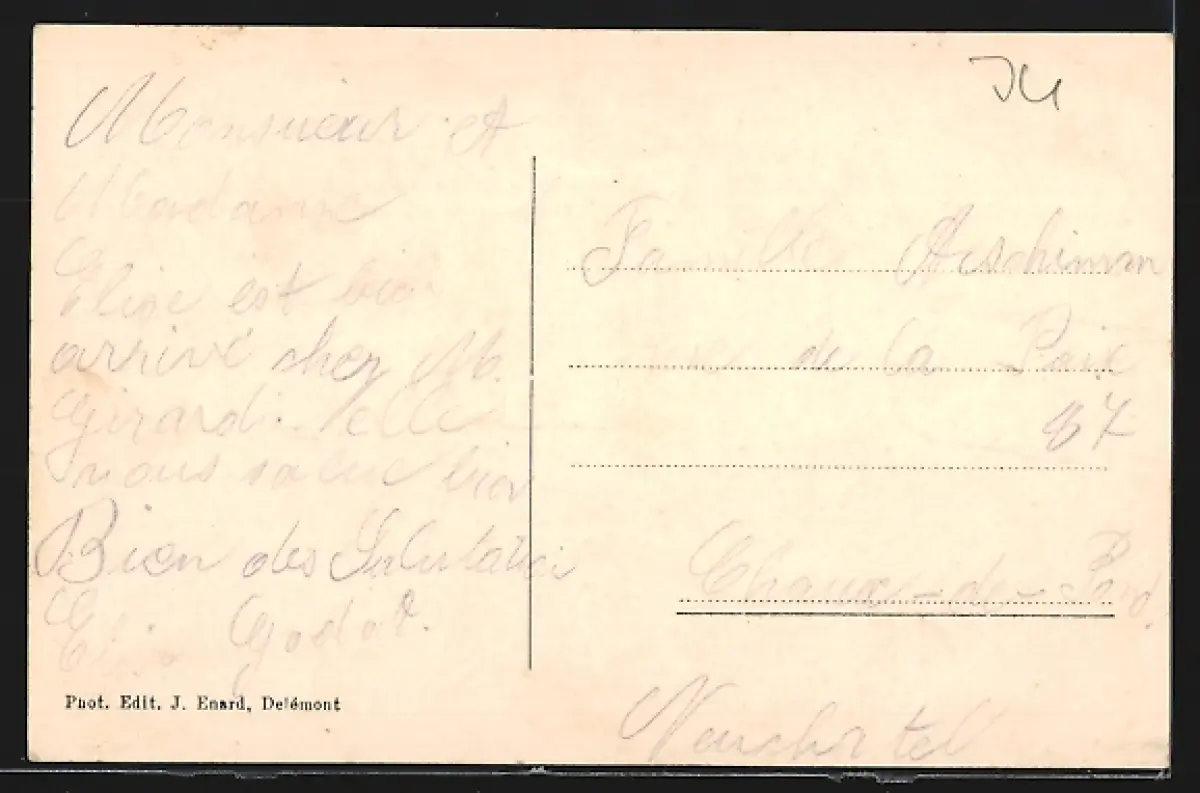 Monsieur et
Madame
Elise est bien
arrivé chez M.
Girardi. elle
vous salue bien
Bien des Salutatio
Godat.
Phot. Edit. J. Enard, Delémont
J4
Famille Aeschimm
rue de la Paix
87
Chaux-de-Fond
Neuchatel